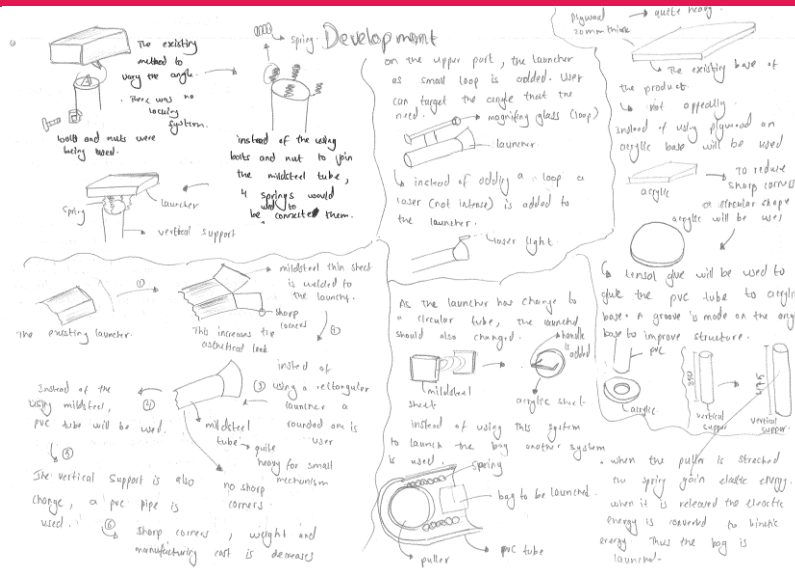 Development
The existing
method to
vary the angle.
There was no
locking
system.
bolts and nuts were
being used.
spring
instead of the using
bolts and nut to join
the mildsteel tube,
4 springs would
be connected them.
spring
launcher
vertical support
on the upper part, the launcher
as small loop is added. User
can target the angle that the
need.
magnifing glass (loop)
launcher.
instead of adding a loop a
laser (not intense) is added to
the launcher.
laser light.
plywood
20mm thick
quite heavy.
The existing base of
the product.
not appeally.
Instead of using plywood an
acrylic base will be used
acrylic
To reduce
sharp corners
a circular shape
acrylic will be used
Tensol glue will be used to
glue the pvc tube to acrylic
base. A groove is made on the
base to improve structure.
pvc
acrylic
350
vertical
support
475
vertical
support.
The existing launcher.
①
mildsteel thin sheet
is welded to
the launcher.
sharp
corners
This increases the
asthetical look
②
③
insted of
using a rectangular
launcher a
rounded one is
user
mildsteel
tube
quite
heavy for small
mechanism
no sharp
corners
④
Instead of the
using mildsteel,
pvc tube will be used.
⑤
The vertical support is also
change, a pvc pipe is
used.
⑥
sharp corners, weight and
manufacturing cost is decreases
As the launcher has change to
a circular tube, the launched
should also changed.
handle
is
added
mildsteel
sheet
acrylic sheet.
instead of using this system
to launch the bag another system
is used.
spring
bag to be launched.
pvc tube
puller
when the puller is streched
the spring gain elastic energy.
when it is released the elastic
energy is converted to kinetic
energy. Thus the bag is
launched.